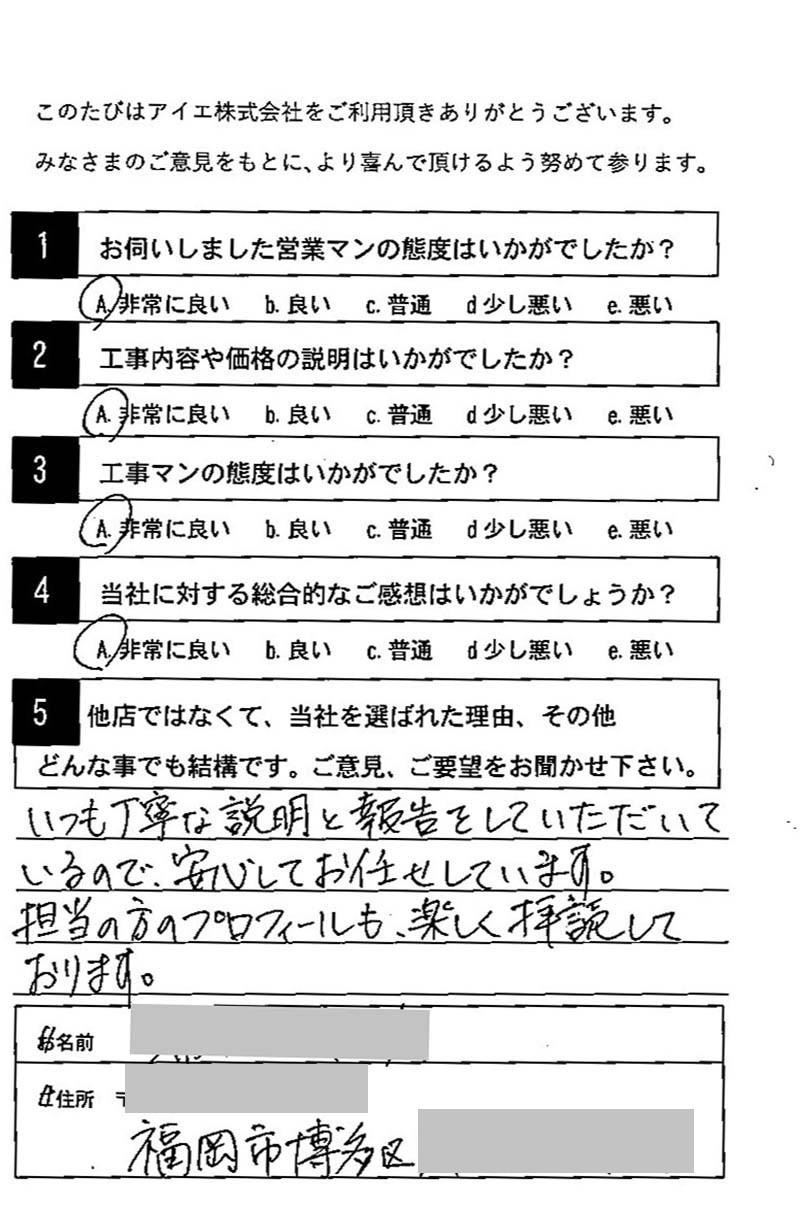 このたびはアイエ株式会社をご利用頂きありがとうございます。
みなさまのご意見をもとに、より喜んで頂けるよう努めて参ります。
1 お伺いしました営業マンの態度はいかがでしたか?
A. 非常に良い b. 良い c. 普通 d 少し悪い e. 悪い
2 工事内容や価格の説明はいかがでしたか?
A. 非常に良い b. 良い c. 普通 d 少し悪い e. 悪い
3 工事マンの態度はいかがでしたか?
A. 非常に良い b. 良い c. 普通 d 少し悪い e. 悪い
4 当社に対する総合的なご感想はいかがでしょうか?
A. 非常に良い b. 良い c. 普通 d 少し悪い e. 悪い
5 他店ではなくて、当社を選ばれた理由、その他
どんな事でも結構です。ご意見、ご要望をお聞かせ下さい。
いつも丁寧な説明と報告をしていただいて
いるので、安心してお任せしています。
担当の方のプロフィールも、楽しく拝読して
おります。
お名前
ご住所 〒
福岡市博多区